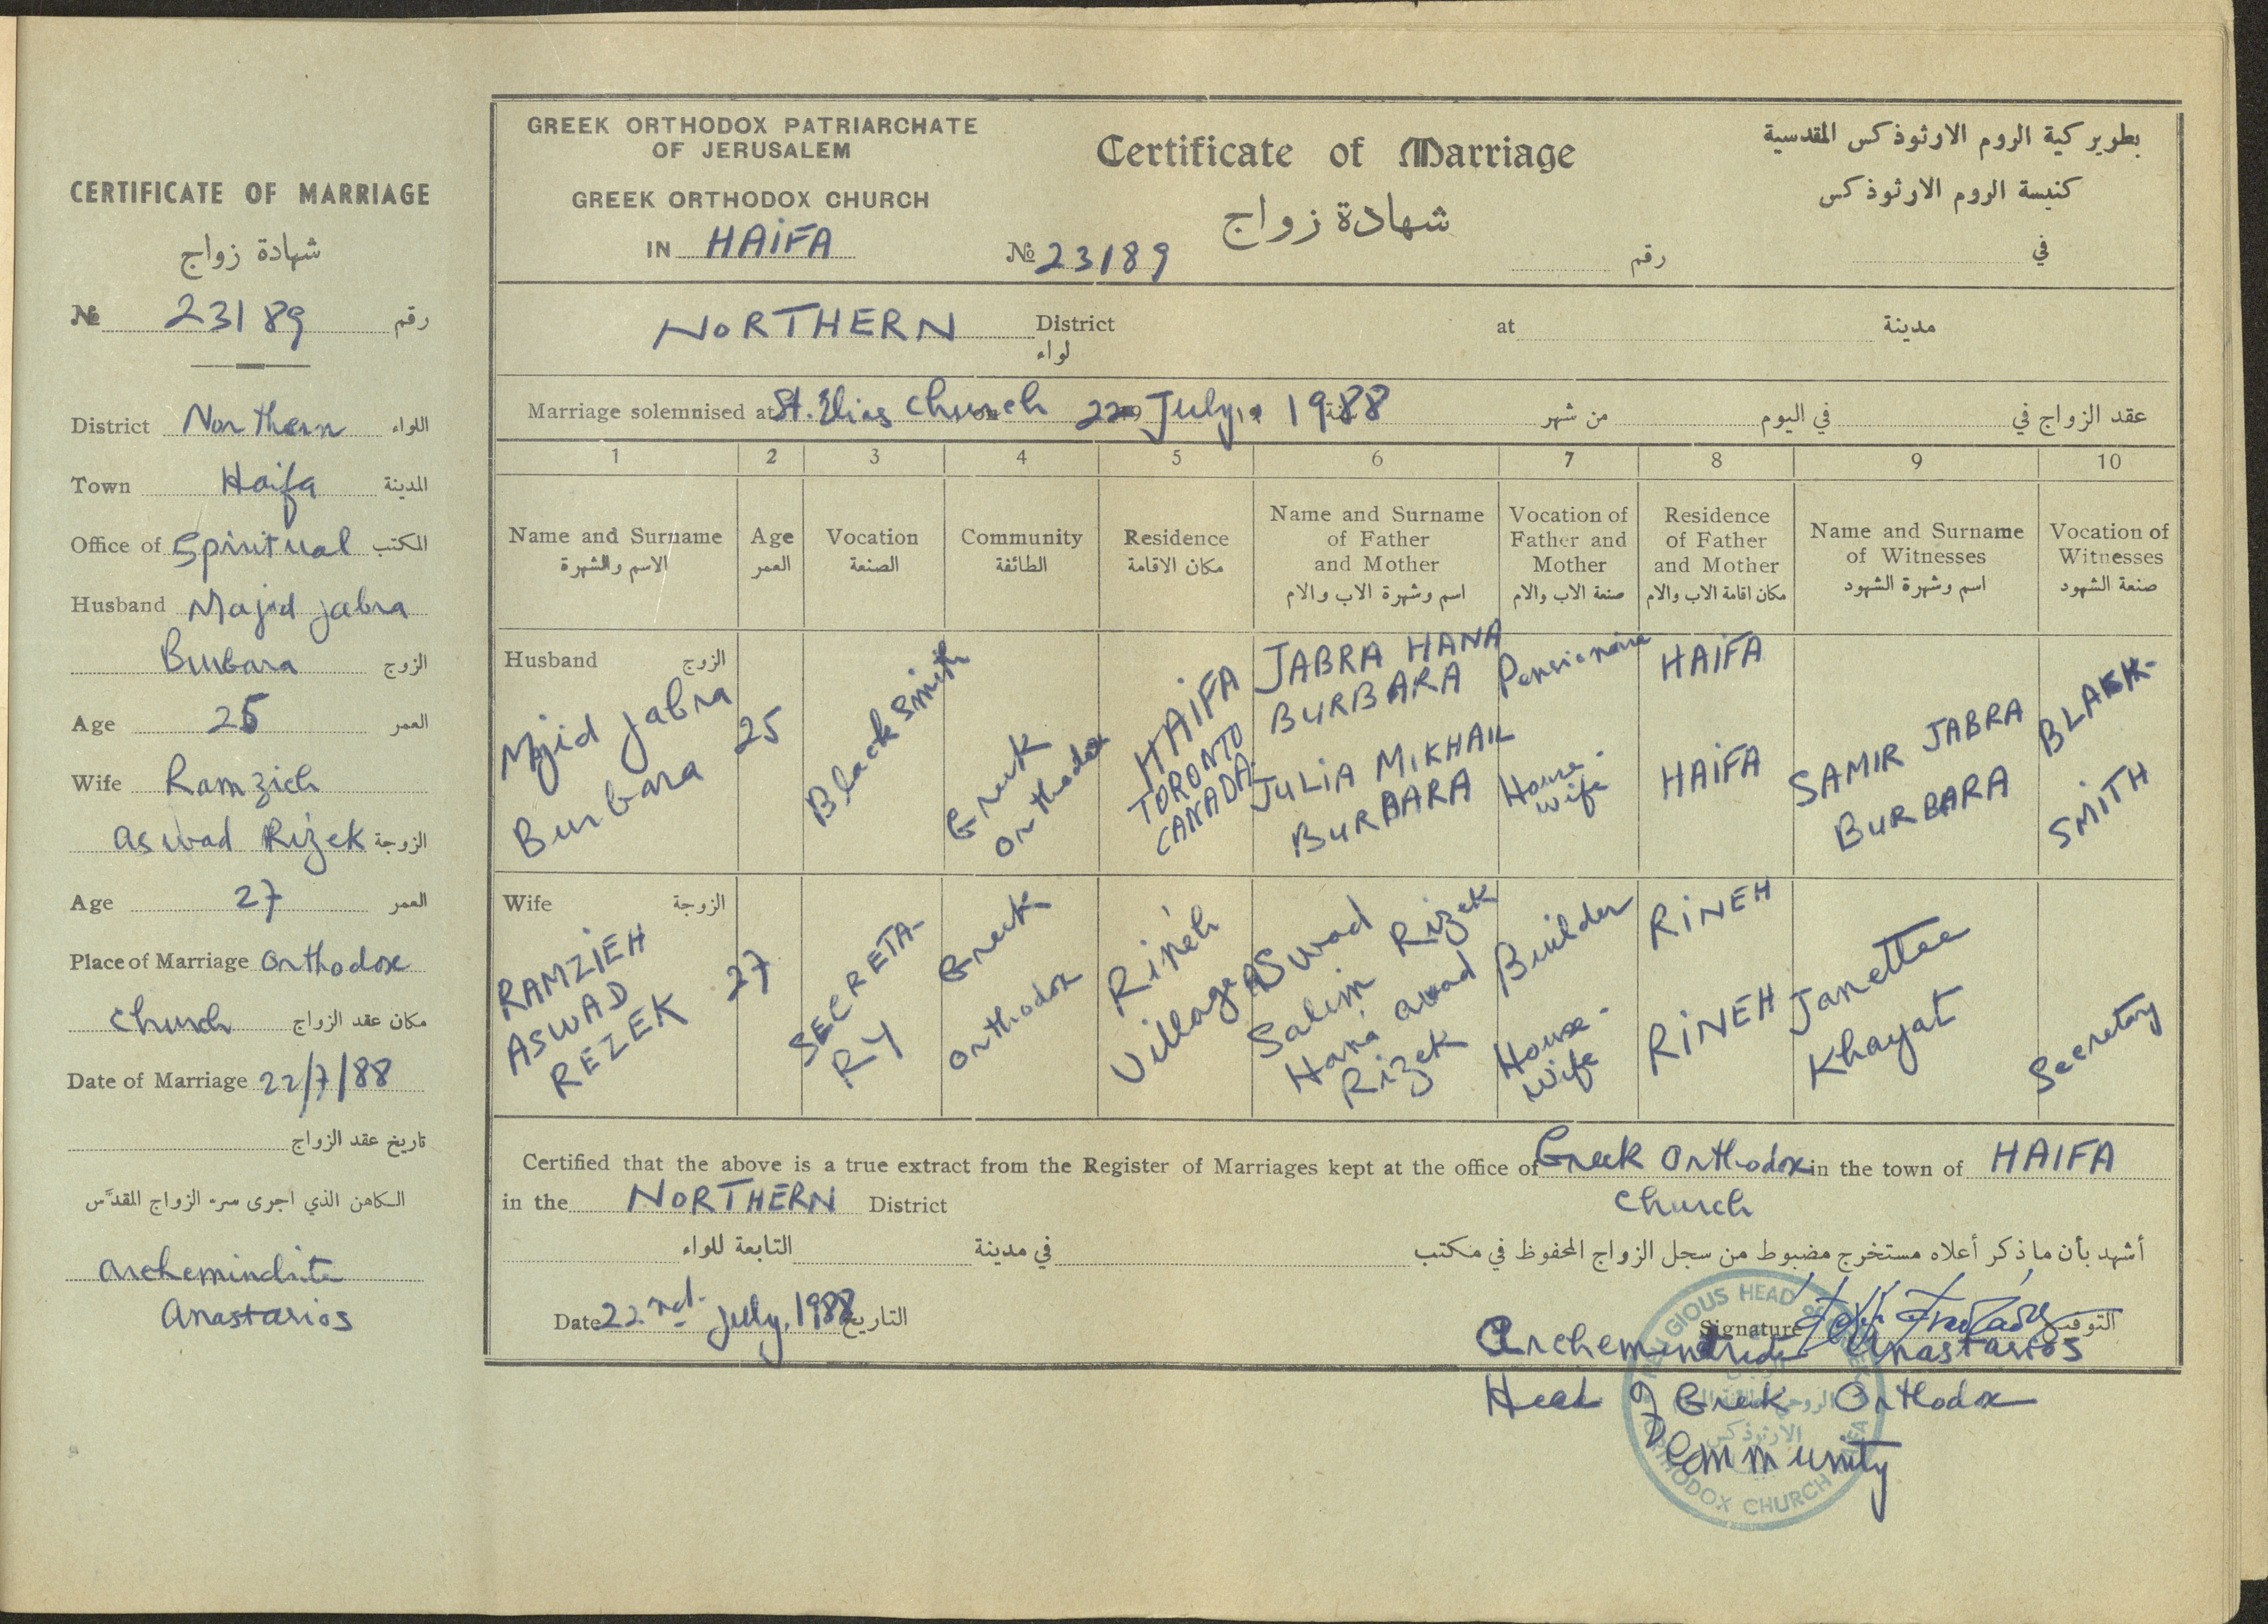 CERTIFICATE OF MARRIAGE
شهادة زواج
№ 23189 رقم
District Northern اللواء
Town Haifa المدينة
Office of Spiritual المكتب
Husband Majid Jabra
Burbara الزوج
Age 25 العمر
Wife Ramzieh
Aswad Rizek الزوجة
Age 27 العمر
Place of Marriage Orthodox
Church مكان عقد الزواج
Date of Marriage 22/7/88
تاريخ عقد الزواج
الكاهن الذي اجرى سر الزواج المقدّس
Archemindrite
Anastasios
GREEK ORTHODOX PATRIARCHATE
OF JERUSALEM
GREEK ORTHODOX CHURCH
IN HAIFA
Certificate of Marriage
شهادة زواج
№ 23189 رقم
بطوير كية الروم الارثوذكس المقدسية
كنيسة الروم الارثوذكس
في
NORTHERN District at مدينة
لواء
Marriage solemnised at St. Elias Church 22 July, 1988 من شهر في اليوم عقد الزواج في
1 2 3 4 5 6 7 8 9 10
Name and Surname
الاسم والشهرة
Age
العمر
Vocation
الصنعة
Community
الطائفة
Residence
مكان الاقامة
Name and Surname
of Father
and Mother
اسم وشهرة الاب والام
Vocation of
Father and
Mother
صنعة الاب والام
Residence
of Father
and Mother
مكان اقامة الاب والام
Name and Surname
of Witnesses
اسم وشهرة الشهود
Vocation of
Witnesses
صنعة الشهود
Husband الزوج
Mjid Jabra
Burbara
25
Blacksmith
Greek
Orthodox
HAIFA
TORONTO
CANADA.
JABRA HANA
BURBARA
JULIA MIKHAIL
BURBARA
Pensionaire
House-
wife
HAIFA
HAIFA
SAMIR JABRA
BURBARA
BLAKK-
SMITH
Wife الزوجة
RAMZIEH
ASWAD
REZEK
27
SECRETA-
RY
Greek
Orthodox
Rineh
Village
ASwad
Salim Rizek
Hana awad
Rizek
Builder
House-
wife
RINEH
RINEH
Janettee
Khayat
Secretary
Certified that the above is a true extract from the Register of Marriages kept at the office of Greek Orthodox in the town of HAIFA
Church
in the NORTHERN District
أشهد بأن ما ذكر أعلاه مستخرج مضبوط من سجل الزواج المحفوظ في مكتب في مدينة التابعة للواء
Date 22nd. July, 1988 التاريخ
Signature التوقيع
Archemindrite Anastasios
Head of Greek Orthodox
Community